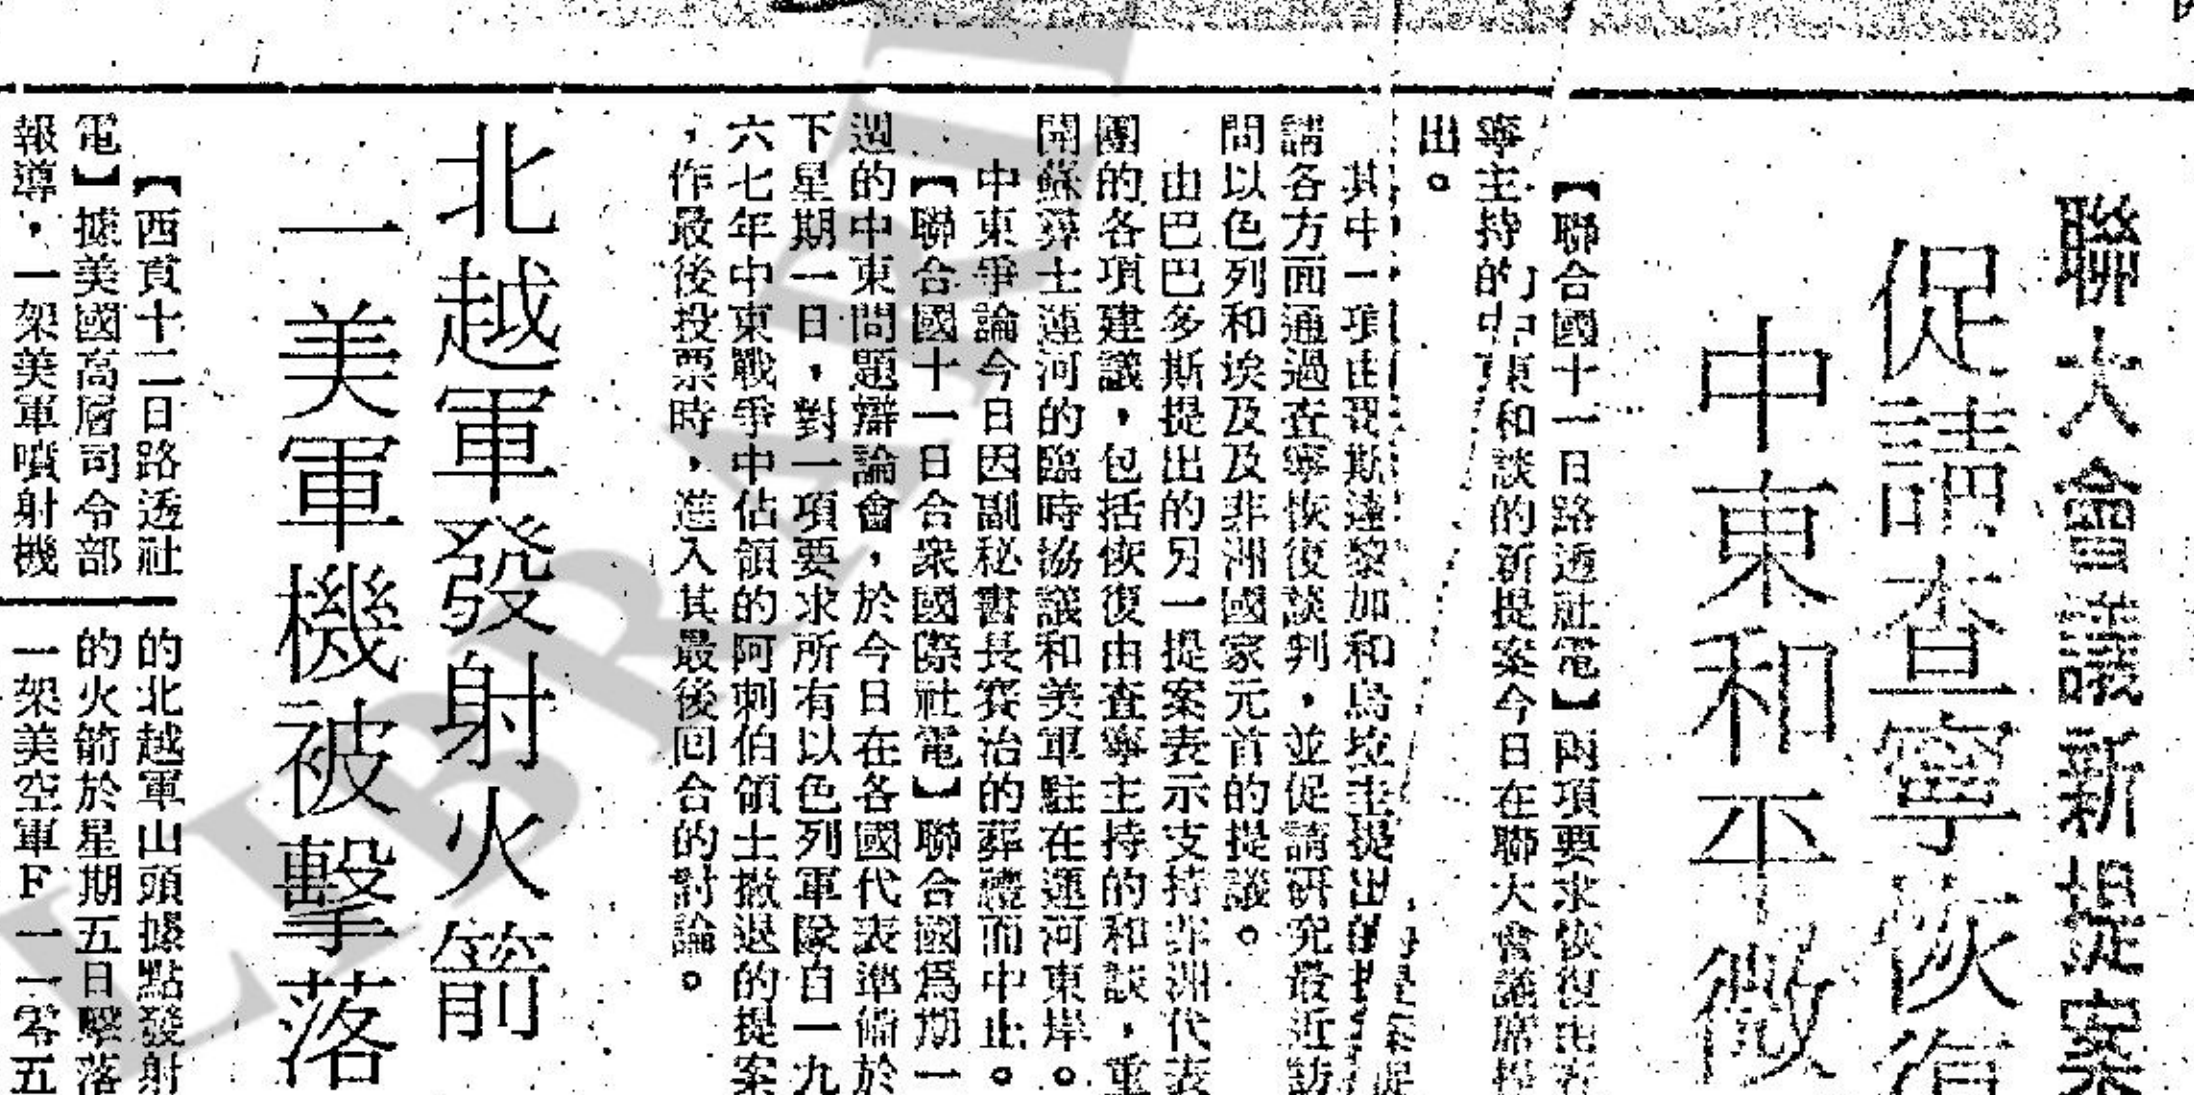 聯大會議新提案
促請查寧恢復
中東和平徵
【聯合國十一日路透社電】兩項要求恢復由查
寧主持的中東和談的新提案今日在聯大會議席提
出。
其中一項由
請各方面通過查寧恢復談判，並促請研究最近訪
問以色列和埃及及非洲國家元首的提議。
由巴巴多斯提出的另一提案表示支持非洲代表
團的各項建議，包括恢復由查寧主持的和談，重
開蘇彝士運河的臨時協議和美軍駐在運河東岸。
中東爭論今日因副秘書長賽治的葬禮而中止。
【聯合國十一日合衆國際社電】聯合國爲期一
週的中東問題辯論會，於今日在各國代表準備於
下星期一日，對一項要求所有以色列軍隊自一九
六七年中東戰爭中佔領的阿剌伯領土撤退的提案
，作最後投票時，進入其最後回合的討論。
北越軍發射火箭
一美軍機被擊落
【西貢十二日路透社
電】據美國高層司令部
報導，一架美軍噴射機
的北越軍山頭據點發射
的火箭於星期五日擊落
一架美空軍F一一零五
LIBRARI